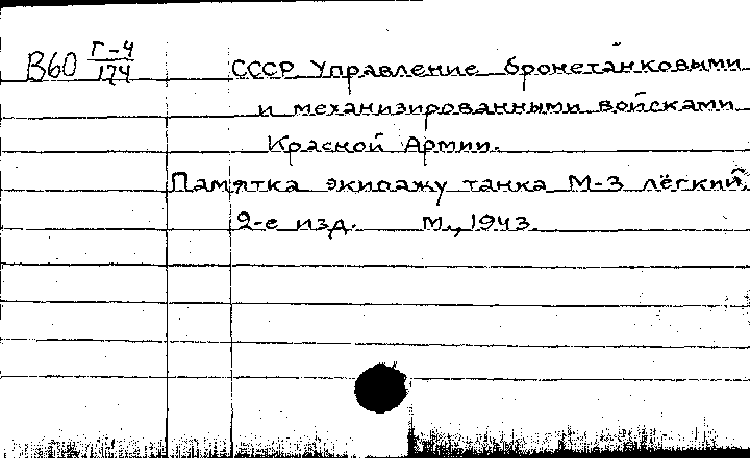 В60 Г-4/174 СССР Управление бронетанковыми
и механизированными войсками
Красной Армии.
Памятка экипажу танка М-3 лёгкий.
2-е изд. М., 1943.